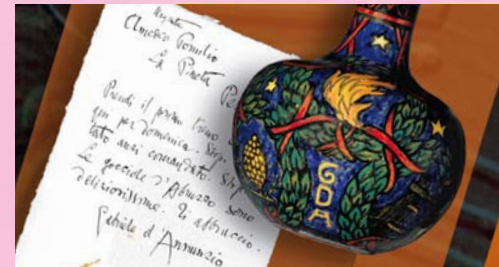 Amedeo Pomilio
La Pineta Pe
Prendi il primo treno
qui per domenica.
tato anzi comandato.
Le goccie d'Abruzzo sono
deliziosissime. Ti abbraccio.
Gabriele d'Annunzio
GDA